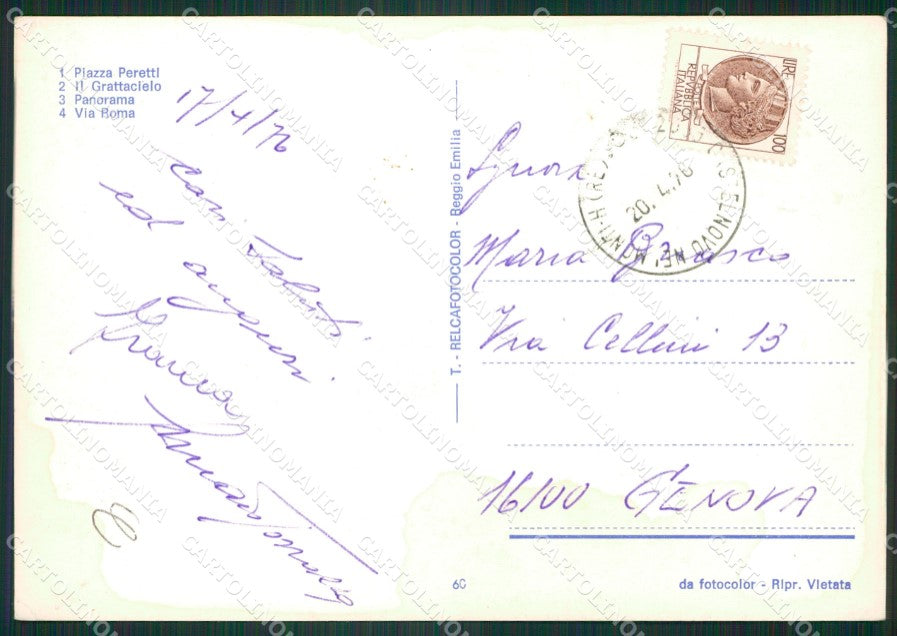 1 Piazza Peretti
2 Il Grattacielo
3 Panorama
4 Via Roma
17/4/76
Cari saluti
ed auguri
Franca
T. - RELCAFOTOCOLOR - Reggio Emilia
LIRE 100
REPUBBLICA
ITALIANA
20.4.76
NE' MONTI-H (RE)
Signora
Maria
Via Cellini 13
16100 GENOVA
60
da fotocolor - Ripr. Vietata
CARTOLINOMANIA